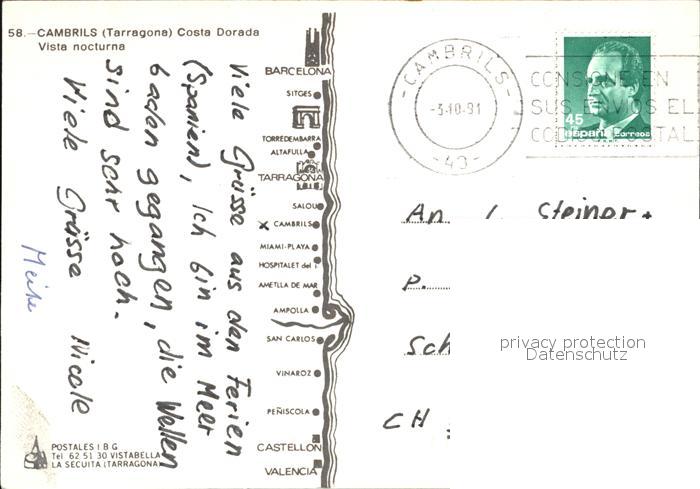 58.—CAMBRILS (Tarragona) Costa Dorada
Vista nocturna
Viele Grüsse aus den Ferien
(Spanien), Ich bin im Meer
baden gegangen, die Wellen
sind sehr hoch.
Viele Grüsse Nicole
Meike
BARCELONA
SITGES
TORREDEMBARRA
ALTAFULLA
TARRAGONA
SALOU
X CAMBRILS
MIAMI-PLAYA
HOSPITALET del I.
AMETLLA DE MAR
AMPOLLA
SAN CARLOS
VINAROZ
PEÑISCOLA
CASTELLON
VALENCIA
POSTALES I B G
Tel 62 51 30 VISTABELLA
LA SECUITA (TARRAGONA)
-CAMBRILS-
-3.10-91
-43-
CONSIGNE EN
SUS ENVIOS EL
CODIGO POSTAL
45
españa Correos
An Steiner
P.
Sch
CH
privacy protection
Datenschutz